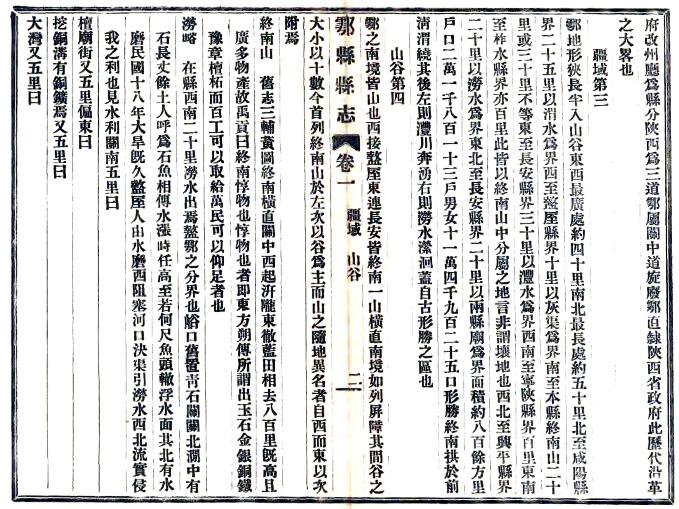 府改州廳爲縣分陝西爲三道鄠屬關中道旋廢鄠直隸陝西省政府此歷代沿革
之大畧也
疆域第三
鄠地形狹長半入山谷東西最廣處約四十里南北最長處約五十里北至咸陽縣
界二十五里以渭水爲界西至盩厔縣界十里以灰渠爲界南至本縣終南山二十
里或三十里不等東至長安縣界三十里以灃水爲界西南至寧陝縣界百里東南
至柞水縣界亦百里此皆以終南山中分屬之地言非謂壤地也西北至興平縣界
二十里以澇水爲界東北至長安縣界二十里以兩縣廟爲界面積約八百餘方里
戶口二萬一千八百一十三戶男女十一萬四千九百二十五口形勝終南拱於前
淸渭繞其後左則灃川奔湧右則澇水瀠洄蓋自古形勝之區也
山谷第四
鄠之南境皆山也西接盩厔東連長安皆終南一山橫直南境如列屏障其間谷之
鄠縣縣志 卷一 疆域 山谷 二
大小以十數今首列終南山於左次以谷爲主而山之隨地異名者自西而東以次
附焉
終南山 舊志三輔黃圖終南橫直關中西起汧隴東徹藍田相去八百里旣高且
廣多物產故禹貢曰終南惇物也惇物也者即東方朔傳所謂出玉石金銀銅鐵
豫章檀柘而百工可以取給萬民可以仰足者也
澇峪 在縣西南二十里澇水出焉盩鄠之分界也峪口舊置靑石關關北澗中有
石長丈餘土人呼爲石魚相傳水漲時任高至若何尺魚頭轍浮水面其北有水
磨民國十八年大旱旣久盩厔人由水磨西阻塞河口決渠引澇水西北流實侵
我之利也見水利關南五里曰
檀廟街又五里偏東曰
挖銅溝有銅鑛焉又五里曰
大灣又五里曰